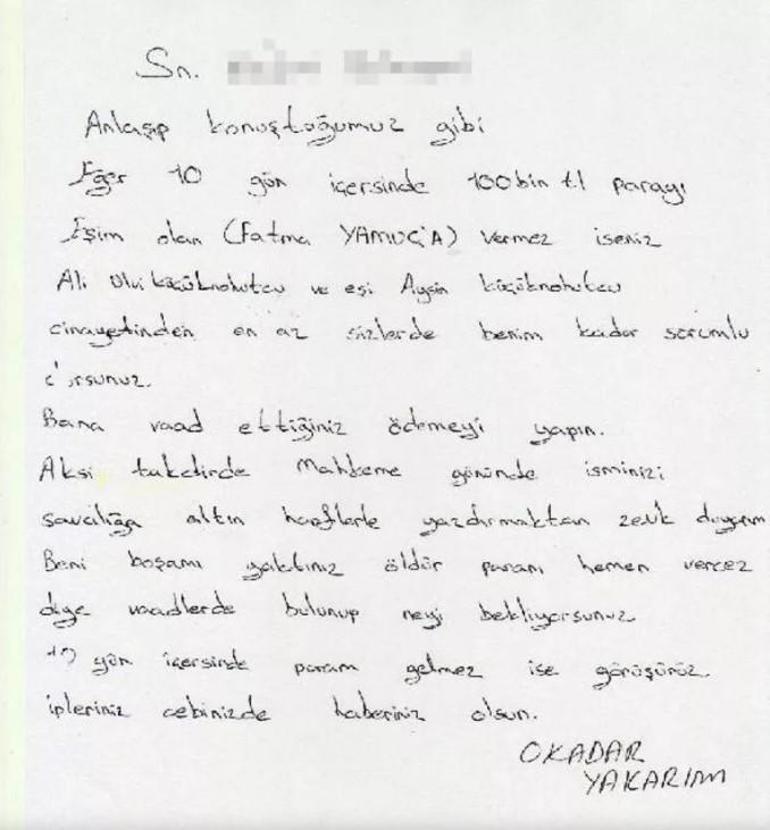 Sn.
Anlaşıp konuştoğumuz gibi
Eğer 10 gün içersinde 100bin tl parayı
Eşim olan (Fatma YAMUÇ'A) vermez iseniz
Ali Ulvi küçüknohutcu ve eşi Aysin küçüknohutcu
cinayetinden en az sizlerde benim kadar sorumlu
Bana vaad ettiğiniz ödemeyi yapın.
Aksi takdirde Mahkeme gününde isminizi
savcılığa altın harflerle yazdırmaktan zevk duyarım
Beni boşamı yaktınız öldür paranı hemen vercez
diye vaadlerde bulunup neyi bekliyorsunuz
10 gün içersinde param gelmez ise görüşürüz.
ipleriniz cebinizde haberiniz olsun.
OKADAR
YAKARIM